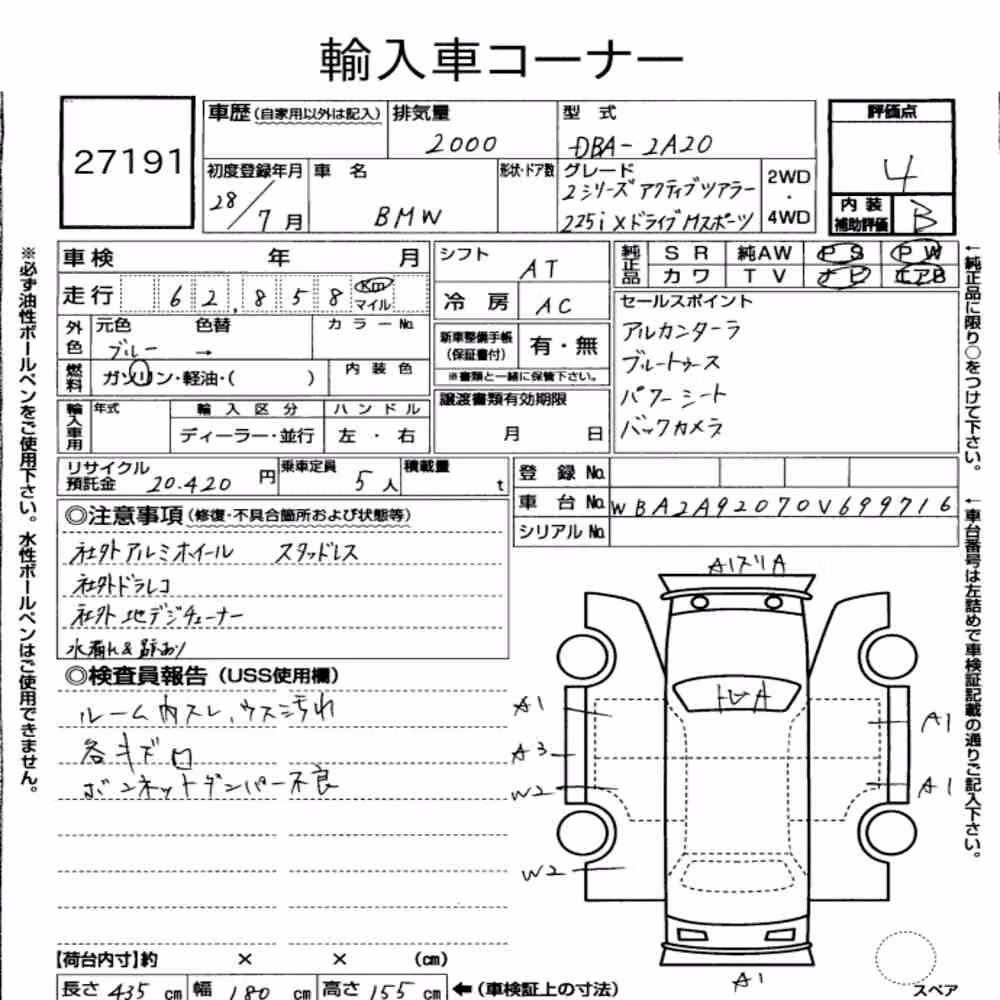 輸入車コーナー
27191
車歴 (自家用以外は記入) 排気量 型 式 評価点
2000 DBA-2A20 4
初度登録年月 車 名 形状・ドア数 グレード 2WD・4WD
28/7月 BMW 2シリーズ アクティブツアラー
225i xドライブ Mスポーツ
内装補助評価 B
車検 年 月
シフト AT
純正品 SR 純AW PS PW
カワ TV ナビ エアB
走行 62,858 Km マイル
冷房 AC
セールスポイント
アルカンターラ
ブルートゥース
パワーシート
バックカメラ
外色 元色 色替 カラーNo.
ブルー →
新車整備手帳(保証書付) 有・無
※書類と一緒に保管下さい。
燃料 ガソリン・軽油・( ) 内装色
譲渡書類有効期限
月 日
輸入車用 年式 輸入区分 ハンドル
ディーラー・並行 左・右
リサイクル預託金 20.420 円 乗車定員 5人 積載量 t
登録No.
車台No. WBA2A92070V699716
シリアルNo.
◎注意事項 (修復・不具合箇所および状態等)
社外アルミホイール スタッドレス
社外ドラレコ
社外地デジチューナー
水漏れ&跡あり
◎検査員報告 (USS使用欄)
ルーム内スレ、ウスヨゴれ
各キズ
ボンネットダンパー不良
A1
A3
W2
W2
A1
A1
A1
【荷台内寸】約 × × (cm)
長さ 435 cm 幅 180 cm 高さ 155 cm ←(車検証上の寸法)
スペア
※必ず油性ボールペンをご使用下さい。水性ボールペンはご使用できません。
←純正品に限り○をつけて下さい。
←車台番号は左詰めで車検証記載の通りご記入下さい。